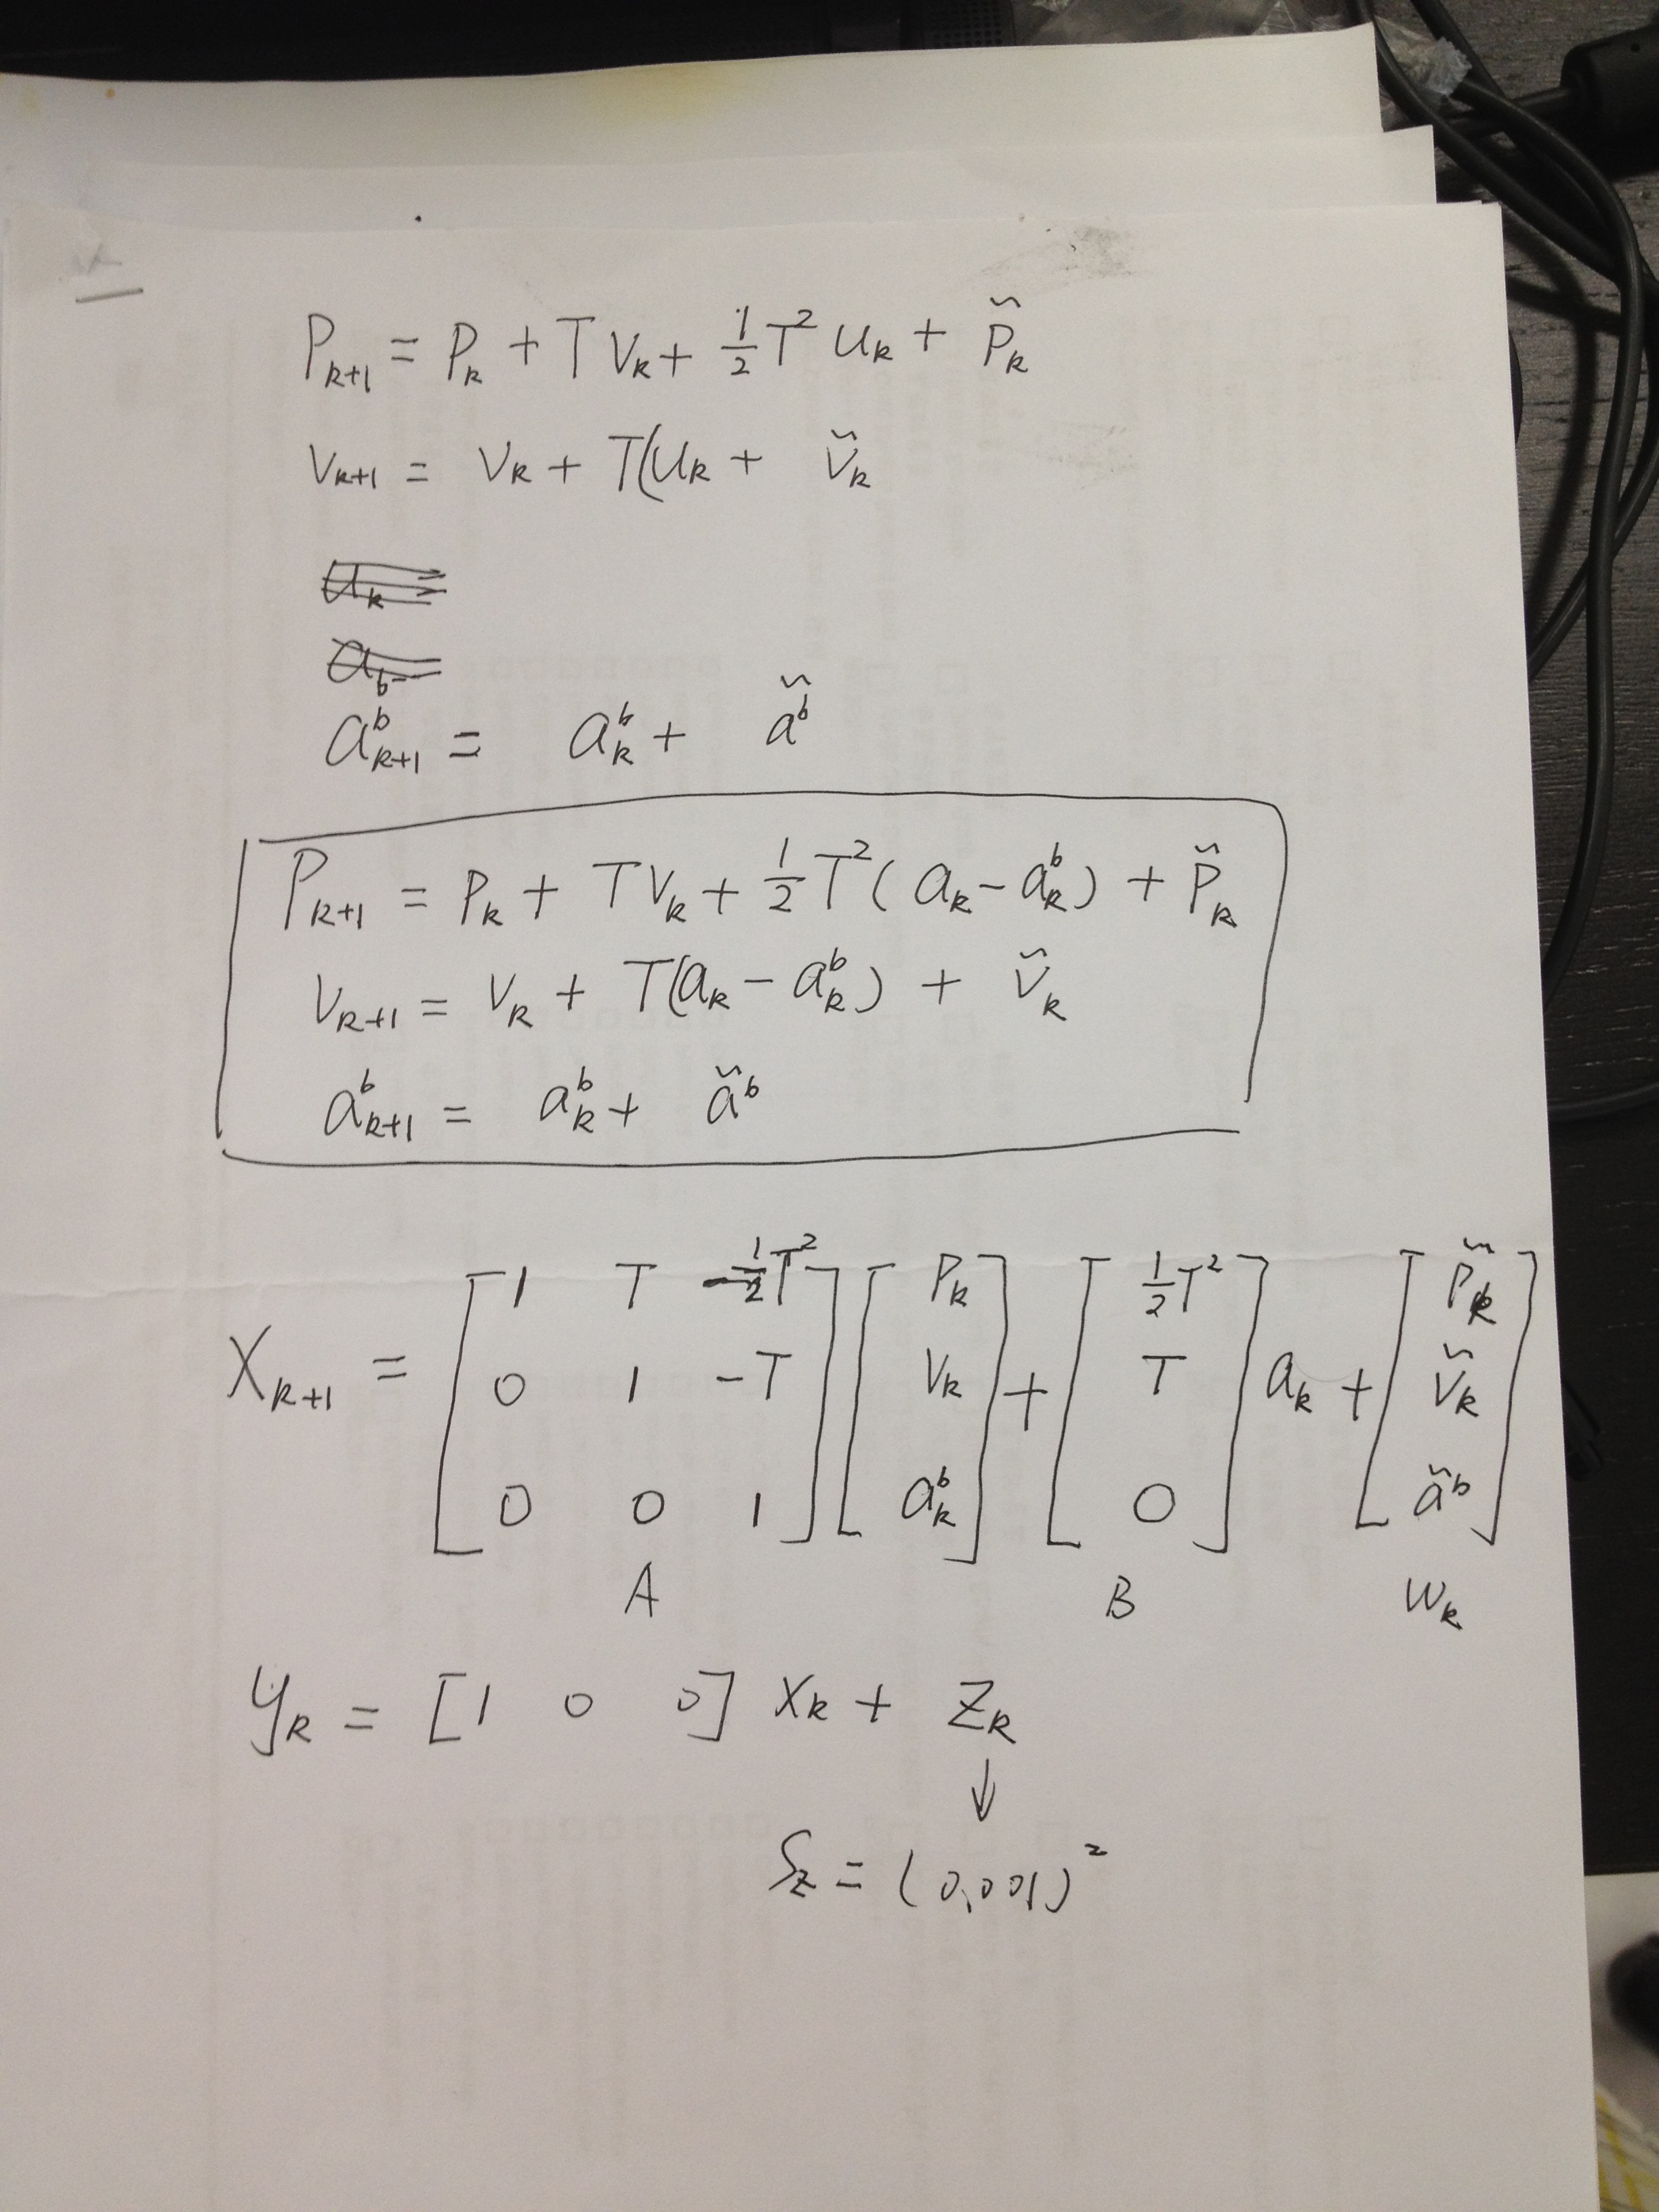 P_{k+1} = P_k + T V_k + \frac{1}{2} T^2 u_k + \tilde{P}_k
V_{k+1} = V_k + T(u_k + \tilde{V}_k
u_k =
a_b
a^b_{k+1} = a^b_k + \tilde{a}^b
P_{k+1} = P_k + T V_k + \frac{1}{2} T^2 ( a_k - a^b_k ) + \tilde{P}_k
V_{k+1} = V_k + T(a_k - a^b_k) + \tilde{V}_k
a^b_{k+1} = a^b_k + \tilde{a}^b
X_{k+1} = \begin{bmatrix} 1 & T & -\frac{1}{2}T^2 \\ 0 & 1 & -T \\ 0 & 0 & 1 \end{bmatrix} \begin{bmatrix} P_k \\ V_k \\ a^b_k \end{bmatrix} + \begin{bmatrix} \frac{1}{2}T^2 \\ T \\ 0 \end{bmatrix} a_k + \begin{bmatrix} \tilde{P}_k \\ \tilde{V}_k \\ \tilde{a}^b \end{bmatrix}
A B W_k
y_k = [1 0 0] X_k + Z_k
↓
S_z = (0.001)^2